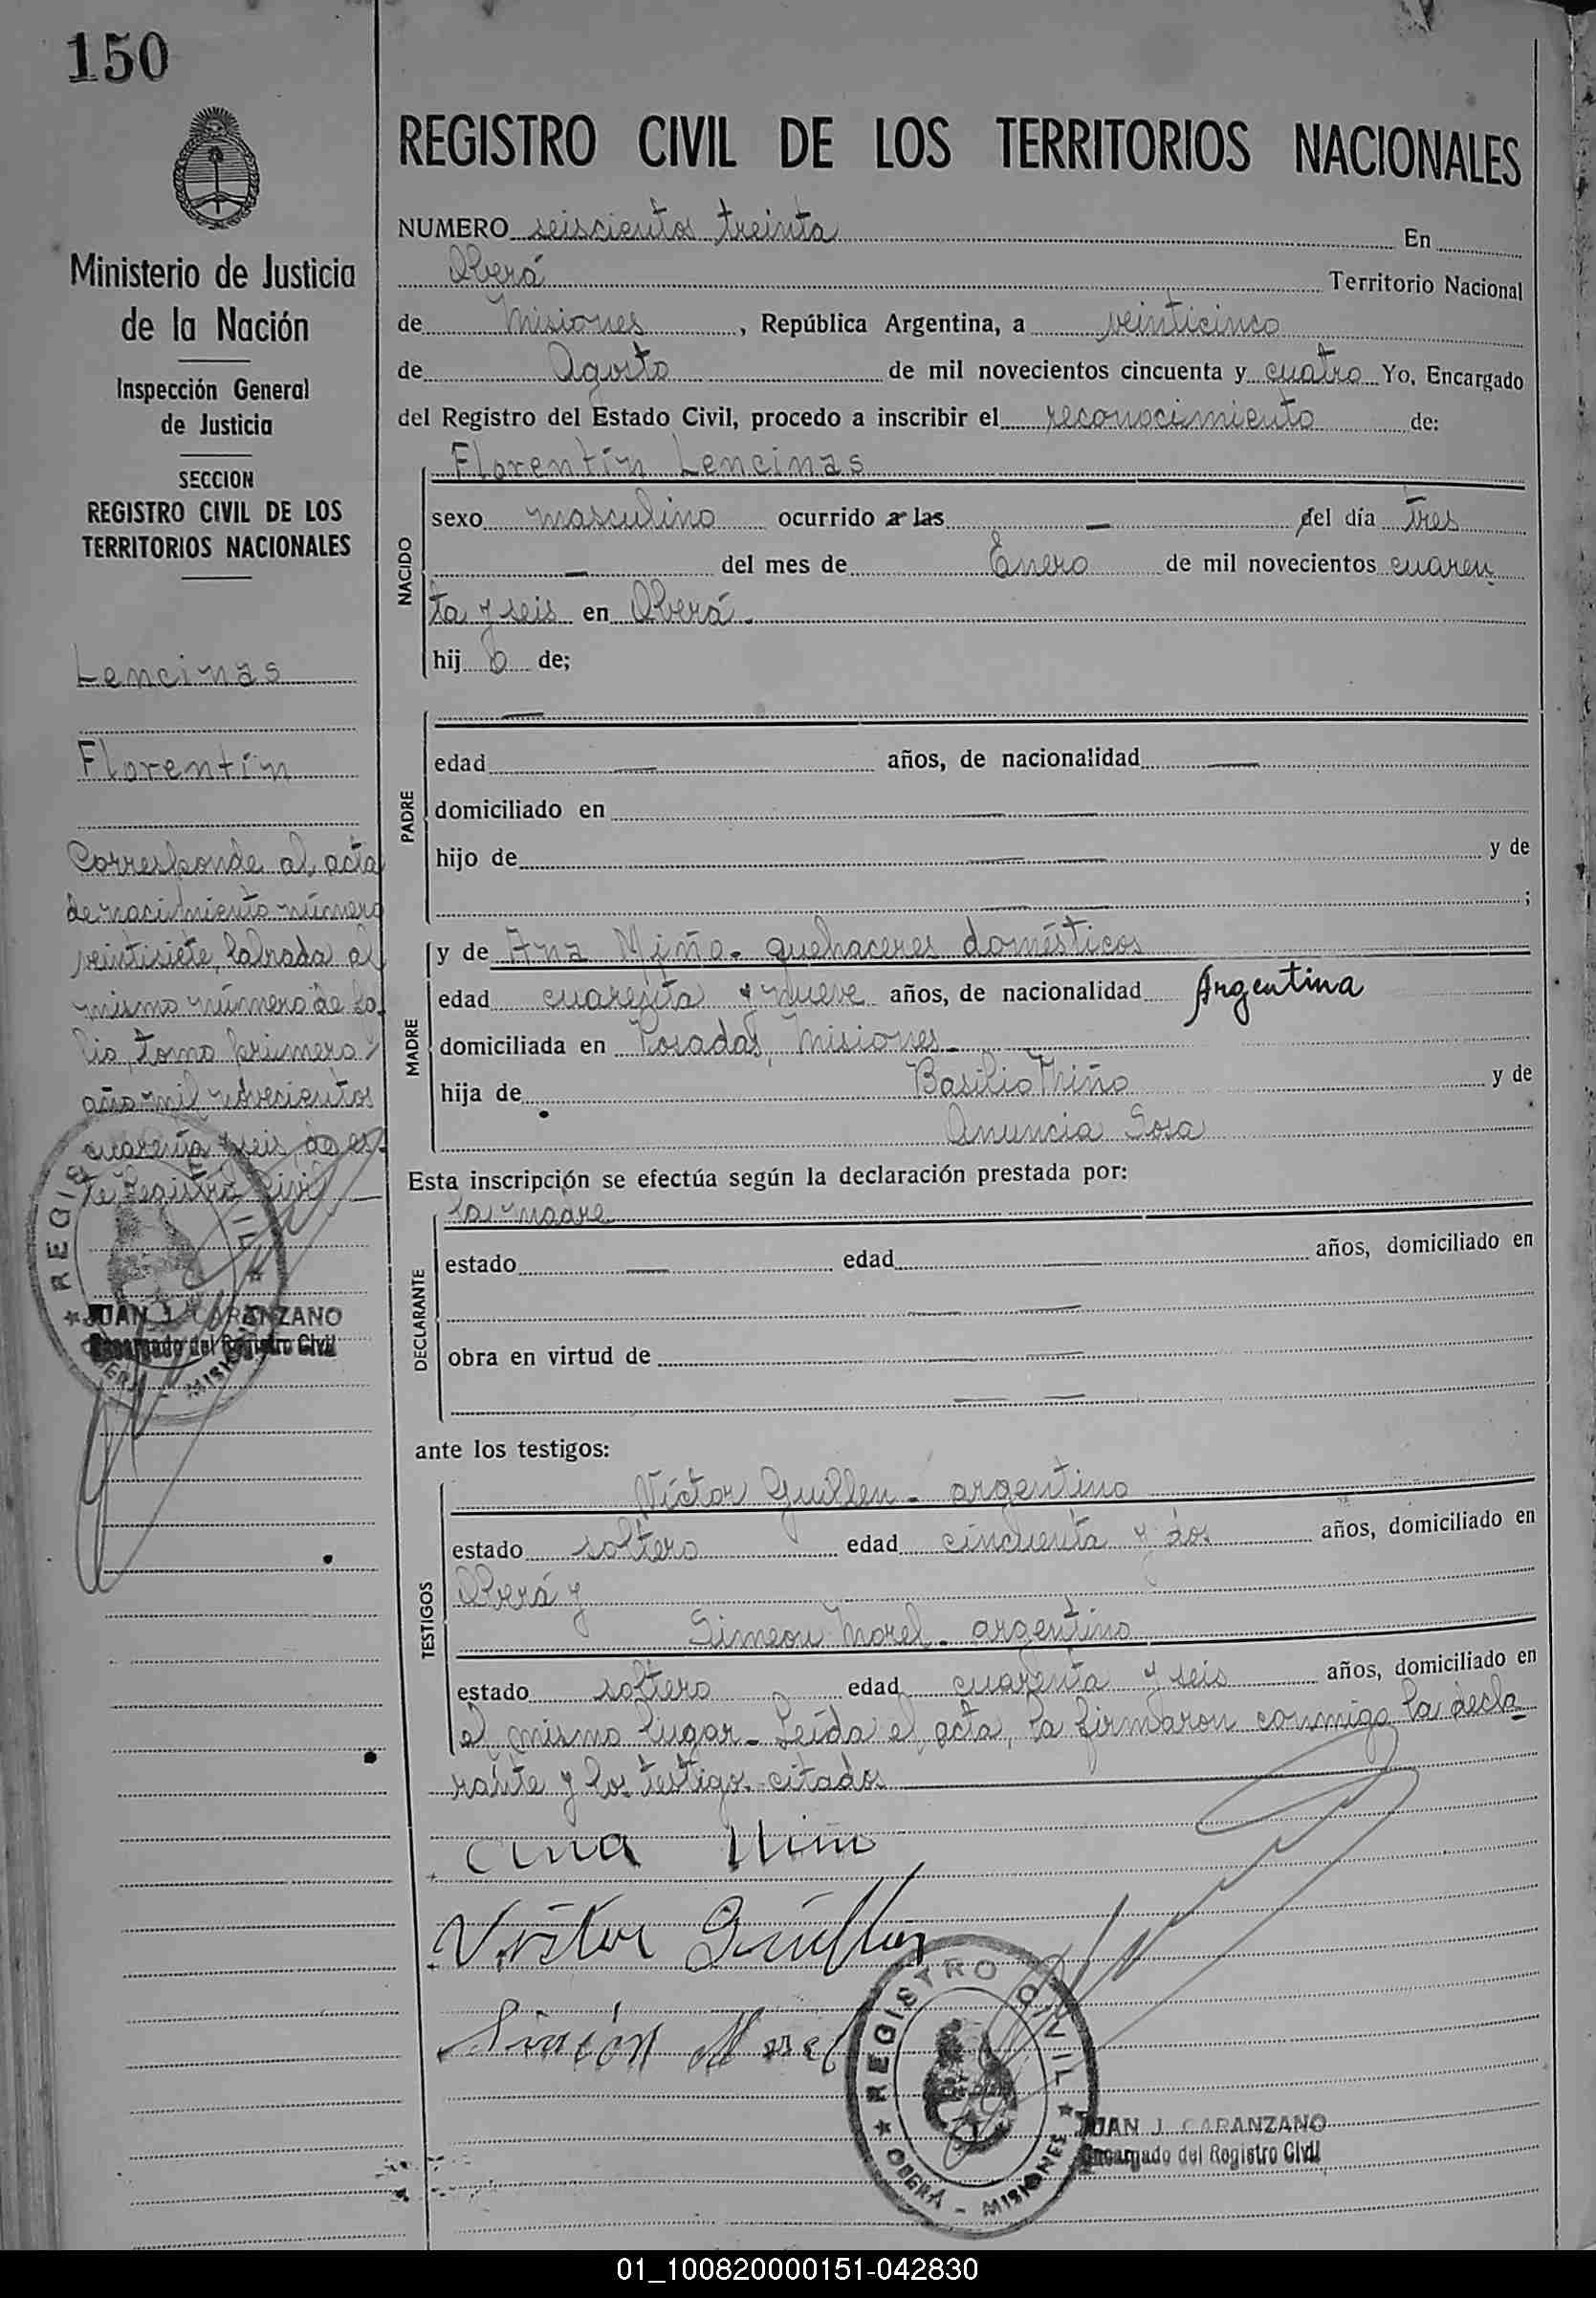 150
REGISTRO CIVIL DE LOS TERRITORIOS NACIONALES
Ministerio de Justicia
de la Nación
Inspección General
de Justicia
SECCION
REGISTRO CIVIL DE LOS
TERRITORIOS NACIONALES
Lencinas
Florentín
Corresponde al acta
de nacimiento número
veintisiete, labrada al
mismo número de fo
lio, tomo primero,
año mil novecientos
cuarenta y seis, de es
te Registro Civil
JUAN J. CARANZANO
Encargado del Registro Civil
NUMERO seiscientos treinta En
Oberá Territorio Nacional
de Misiones, República Argentina, a veinticinco
de Agosto de mil novecientos cincuenta y cuatro Yo, Encargado
del Registro del Estado Civil, procedo a inscribir el reconocimiento de:
Florentín Lencinas
NACIDO
sexo masculino ocurrido a las — del día tres
— del mes de Enero de mil novecientos cuaren
ta y seis en Oberá.
hijo de;
PADRE
—
edad — años, de nacionalidad —
domiciliado en — —
hijo de — — y de
— — ;
MADRE
y de Ana Miño - quehaceres domésticos
edad cuarenta y nueve años, de nacionalidad Argentina
domiciliada en Posadas, Misiones -
hija de Basilio Miño y de
Anuncia Sosa
Esta inscripción se efectúa según la declaración prestada por:
DECLARANTE
la madre
estado — edad — años, domiciliado en
— —
obra en virtud de — —
— —
ante los testigos:
TESTIGOS
Víctor Guillen - argentino
estado soltero edad cincuenta y dos años, domiciliado en
Oberá y
Simeon Morel - argentino
estado soltero edad cuarenta y seis años, domiciliado en
el mismo lugar - Leída el acta, la firmaron conmigo la decla
rante y los testigos citados
Ana Miño
Victor Guillen
Simeón Morel
REGISTRO CIVIL
OBERÁ - MISIONES
JUAN J. CARANZANO
Encargado del Registro Civil
01_100820000151-042830